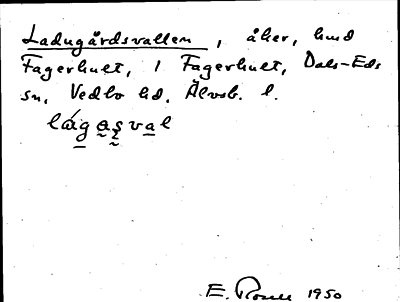 Ladugårdsvallen, åker, hmd
Fagerhult, 1 Fagerhult, Dals-Eds
sn, Vedbo hd, Älvsb. l.
lágaṣval
E. 1950